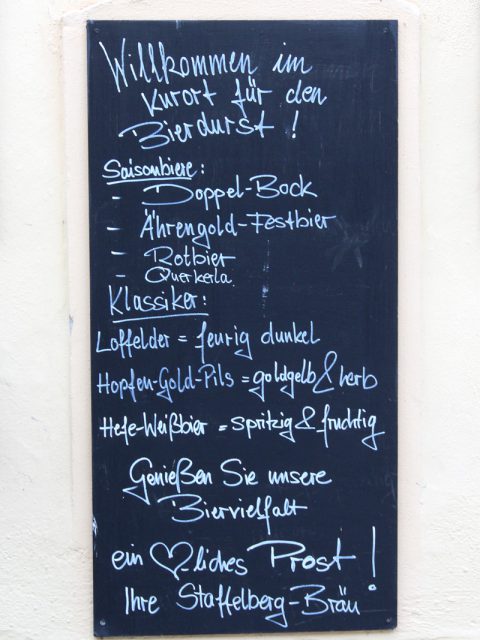 Willkommen im
Kurort für den
Bierdurst!
Saisonbiere:
- Doppel-Bock
- Ährengold-Festbier
- Rotbier
- Querkerla
Klassiker:
Loffelder = feurig dunkel
Hopfen-Gold-Pils = goldgelb & herb
Hefe-Weißbier = spritzig & fruchtig
Genießen Sie unsere
Biervielfalt
ein ♡-liches Prost!
Ihre Staffelberg-Bräu